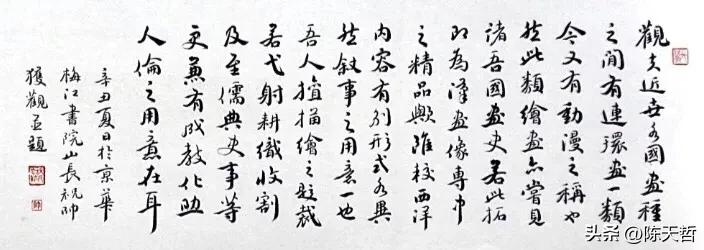 觀夫近世各國畫種
之間有連環畫一類
今又有動漫之稱也
然此類繪畫亦嘗見
諸吾國畫史若此拓
即為漢畫像專中
之精品歟雖校西洋
內容有別形式各異
然敘事之用意一也
吾人擅描繪之題裁
若弋射耕織收割
及至儒典史事等
更兼有成教化助
人倫之用意在耳
辛丑夏日於京華
梅江書院山長祝帥
獲觀並題
头条 @陈天哲